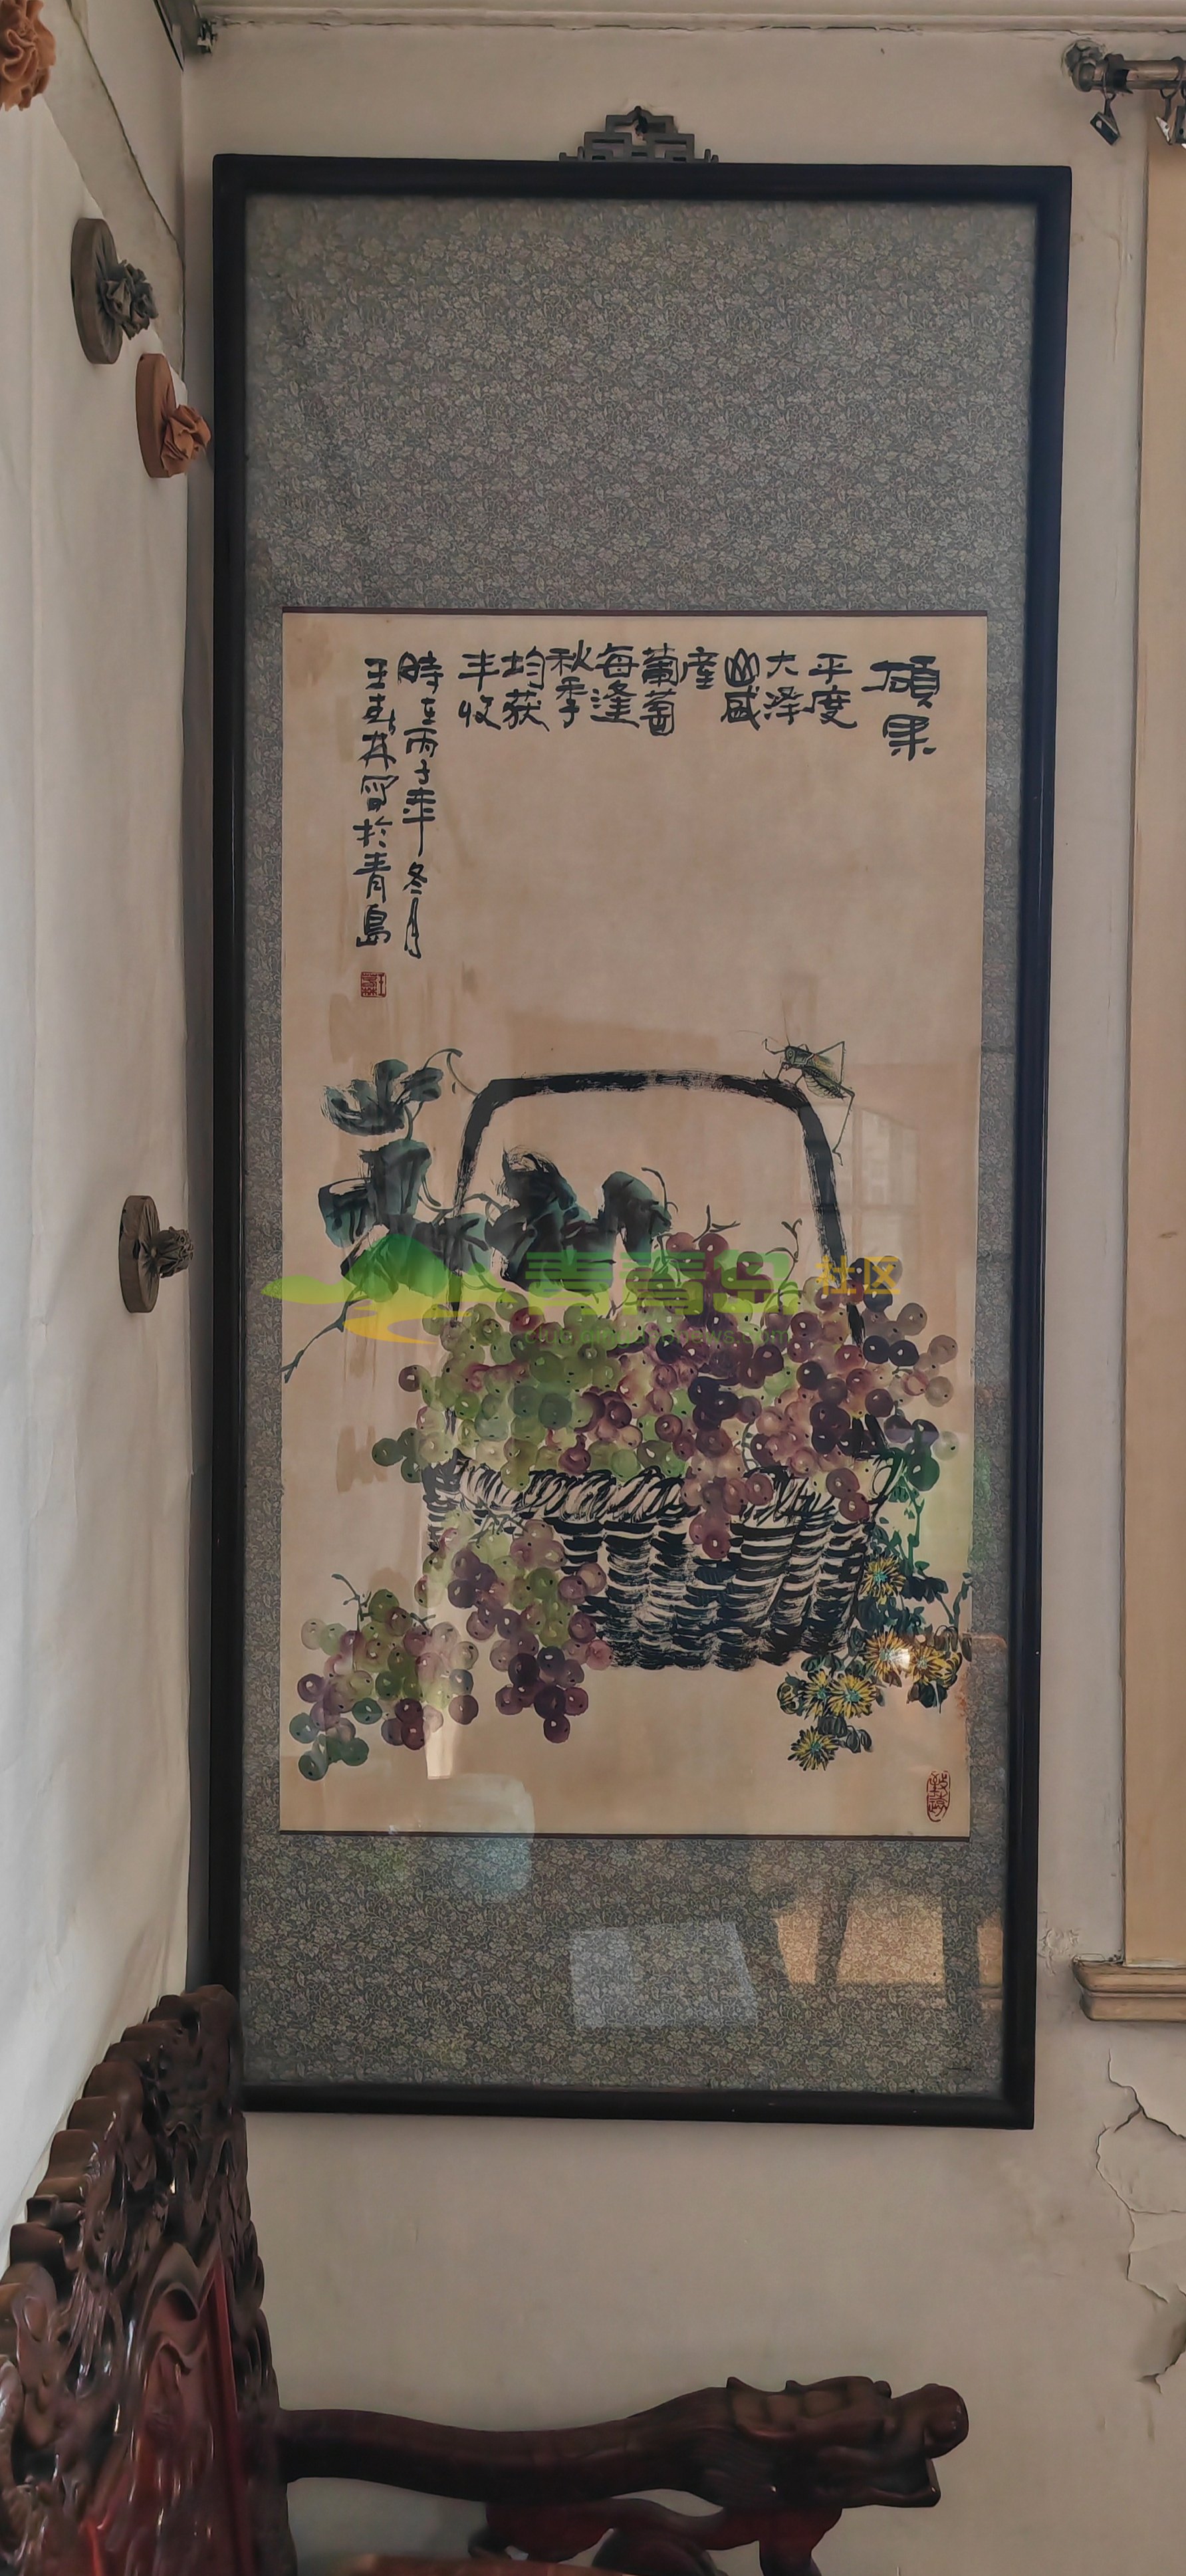 碩果
平度
大澤
山盛
産
葡萄
每逢
秋季
均获
丰收
時在丙子年冬月
王春林寫於青島
青青岛社区
club.qingdaonews.com